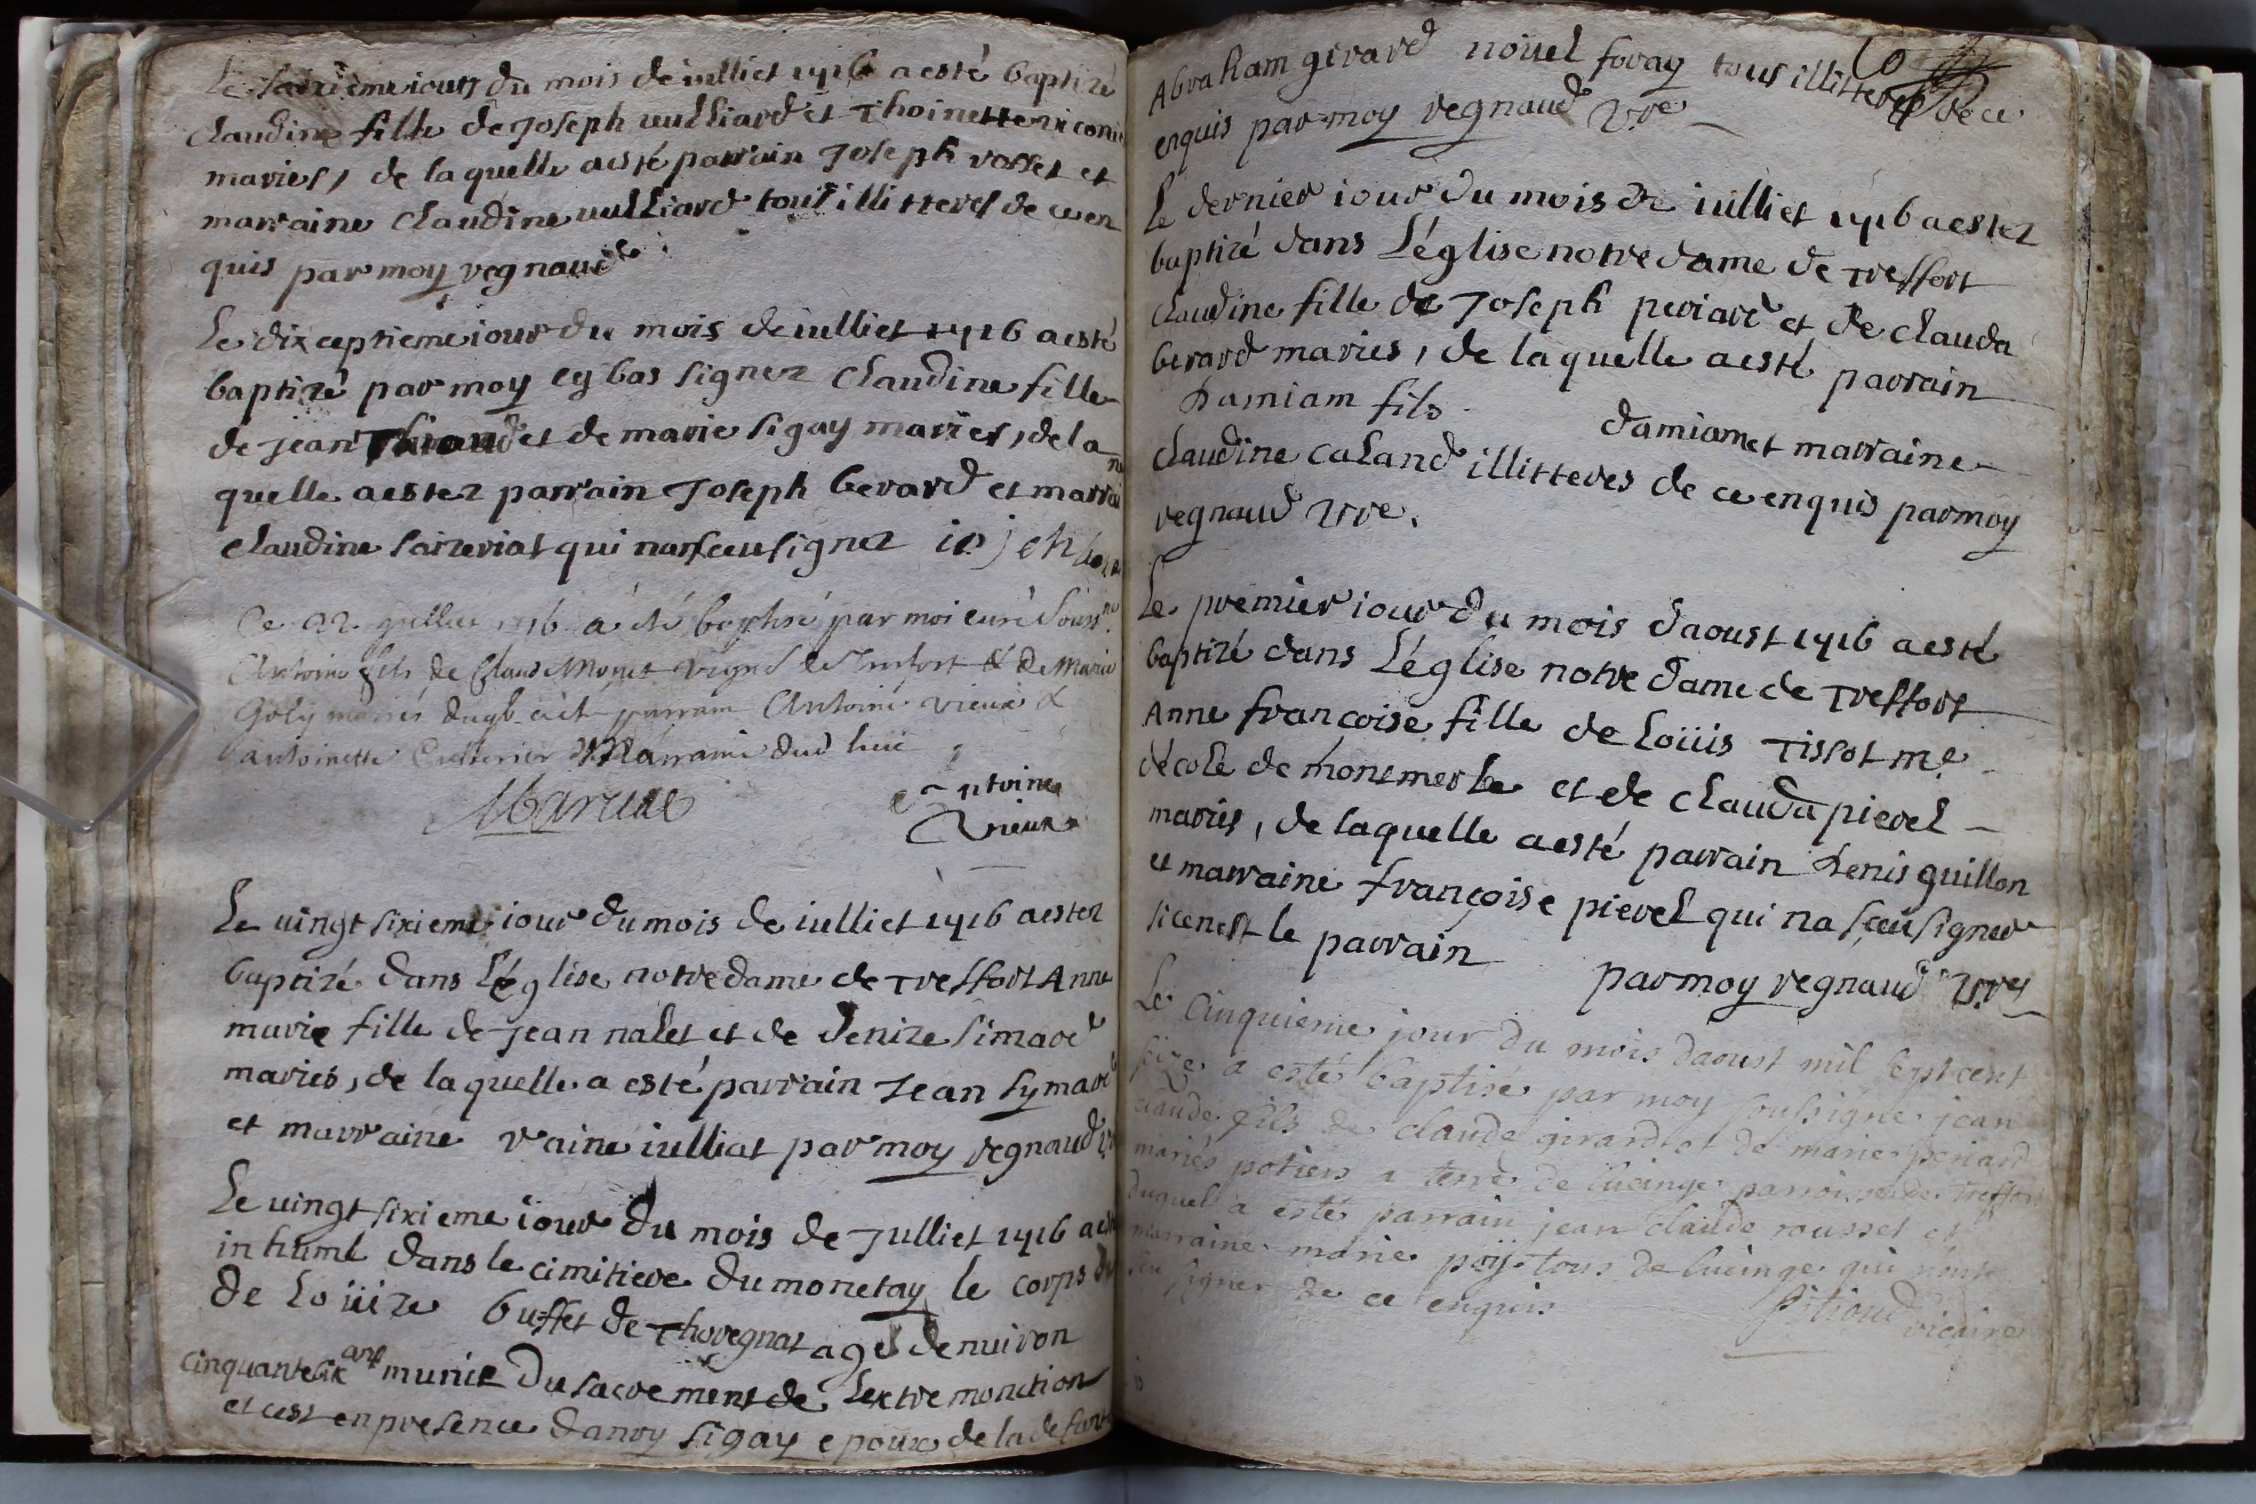 Le saizieme iours du mois de iulliet 1716 a esté baptizé
claudine fille de Joseph uulliard et Thoinette
maries, de laquelle a esté parrain Joseph rosset et
marraine claudine uulliard tous illitteres de ce en
quis par moy regnaud
Le dixceptieme iour du mois de iulliet 1716 a esté
baptizé par moy cy bas signez claudine fille
de jean et de marie sigay maries, de la
quelle a estez parrain Joseph berard et marrai ne
claudine saizeriat qui nont sceu signez
Ce 22 juillet 1716 a été baptisé par moi curé souss.né
Antoine fils de Claude Monet vign de Treffort & de Marie
Goly mariés duql a été parrain Antoine vieux &
antoinette marraine dud lieu
antoine
vieux
Le uingt sixieme iour du mois de iulliet 1716 a estez
baptizé dans L'église notre dame de Treffort Anne
marie fille de jean nalet et de denize simard
maries, de laquelle a esté parrain Jean symard
et marraine raine iulliat par moy regnaud
Le uingt sixieme iour du mois de Julliet 1716 a esté
inhumé dans le cimitiere du monetay le corps
de Loüize buffet de Thoregnat agé denuiron
cinquante six ans munie du sacrement de Lextremonction
et cest en presence danry sigay epoux de la
Abraham girard noüel foray tous illitteres de ce
enquis par moy regnaud vre
Le dernier iour du mois de iulliet 1716 a estez
baptizé dans L'église notre dame de Treffort
claudine fille de Joseph periard et de clauda
berard maries, de laquelle a esté parrain
Damiam fils damiam et marraine
claudine caland illitteres de ce enquis par moy
regnaud vre.
Le premier iour du mois daoust 1716 a esté
baptizé dans L'église notre dame de Treffort
Anne francoise fille de Loüis Tissot me
décole de montmerle et de clauda pierel
maries, de laquelle a esté parrain Denis guillon
et marraine françoise pierel qui na sceu signer
si cenest le parrain par moy regnaud vre
Le Cinquieme jour du mois daoust mil sept cent
seize a esté baptisé par moy soussigne jean
claude fils de claude girard et de marie periard
mariés potiers a terre de lucinge parroisse de Treffort
duquel a esté parrain jean claude rousset et
marraine marie poÿ tous de lucinge qui n'ont
seu signer de ce enquis vicaire